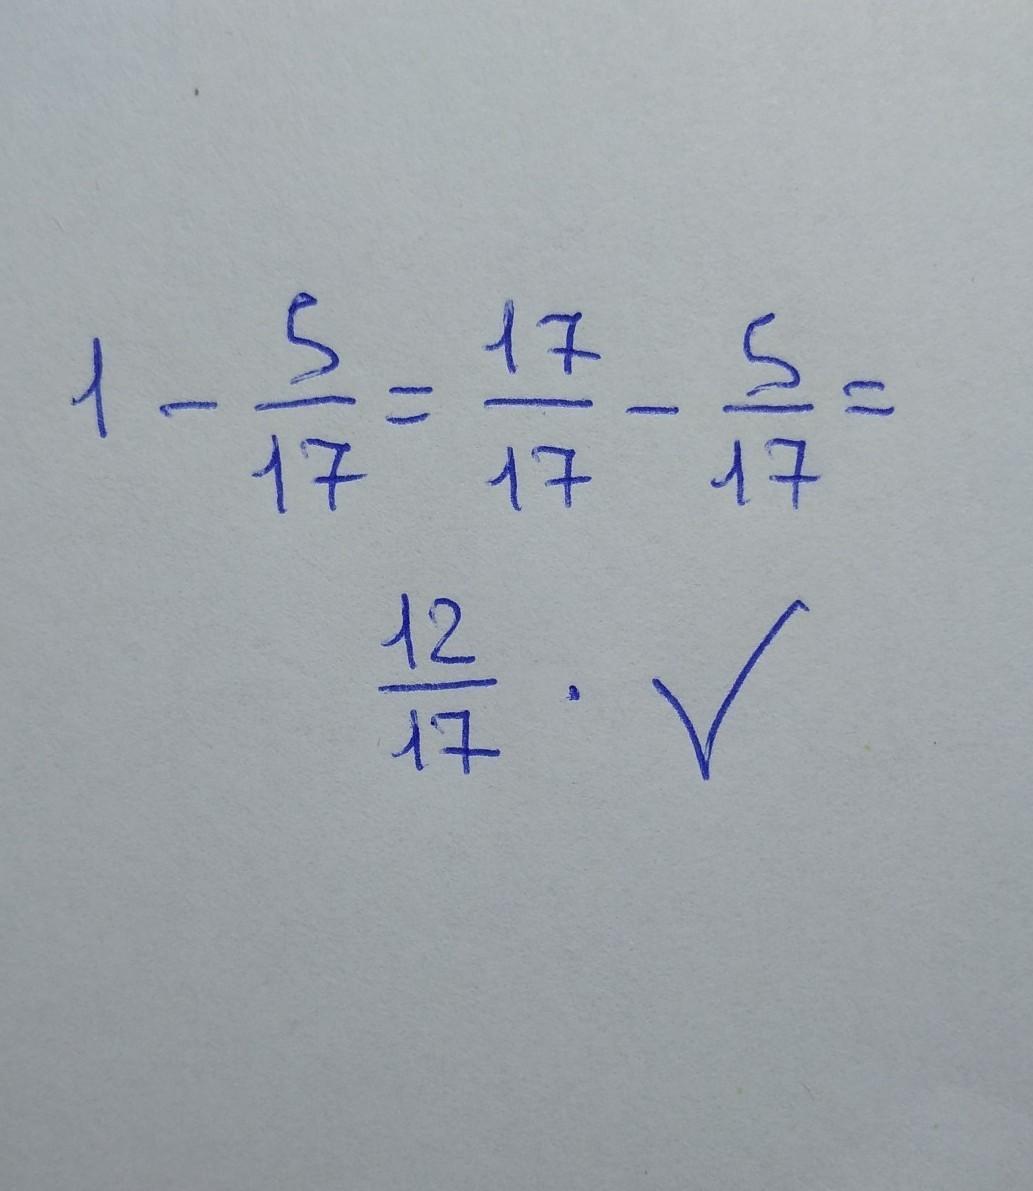 1 - 5/17 = 17/17 - 5/17 =
12/17 . ✓